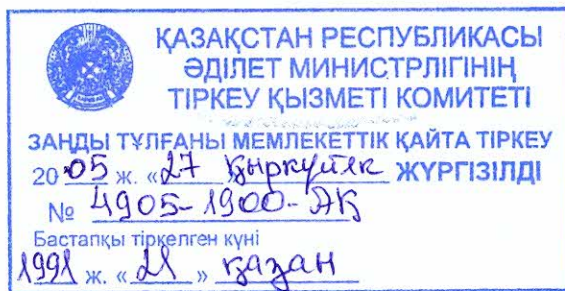 ҚАЗАҚСТАН РЕСПУБЛИКАСЫ
ӘДІЛЕТ МИНИСТРЛІГІНІҢ
ТІРКЕУ ҚЫЗМЕТІ КОМИТЕТІ
ЗАҢДЫ ТҰЛҒАНЫ МЕМЛЕКЕТТІК ҚАЙТА ТІРКЕУ
20 05 ж. «27 қыркүйек ЖҮРГІЗІЛДІ
№ 4905-1900-АҚ
Бастапқы тіркелген күні
1991 ж. «21» қазан